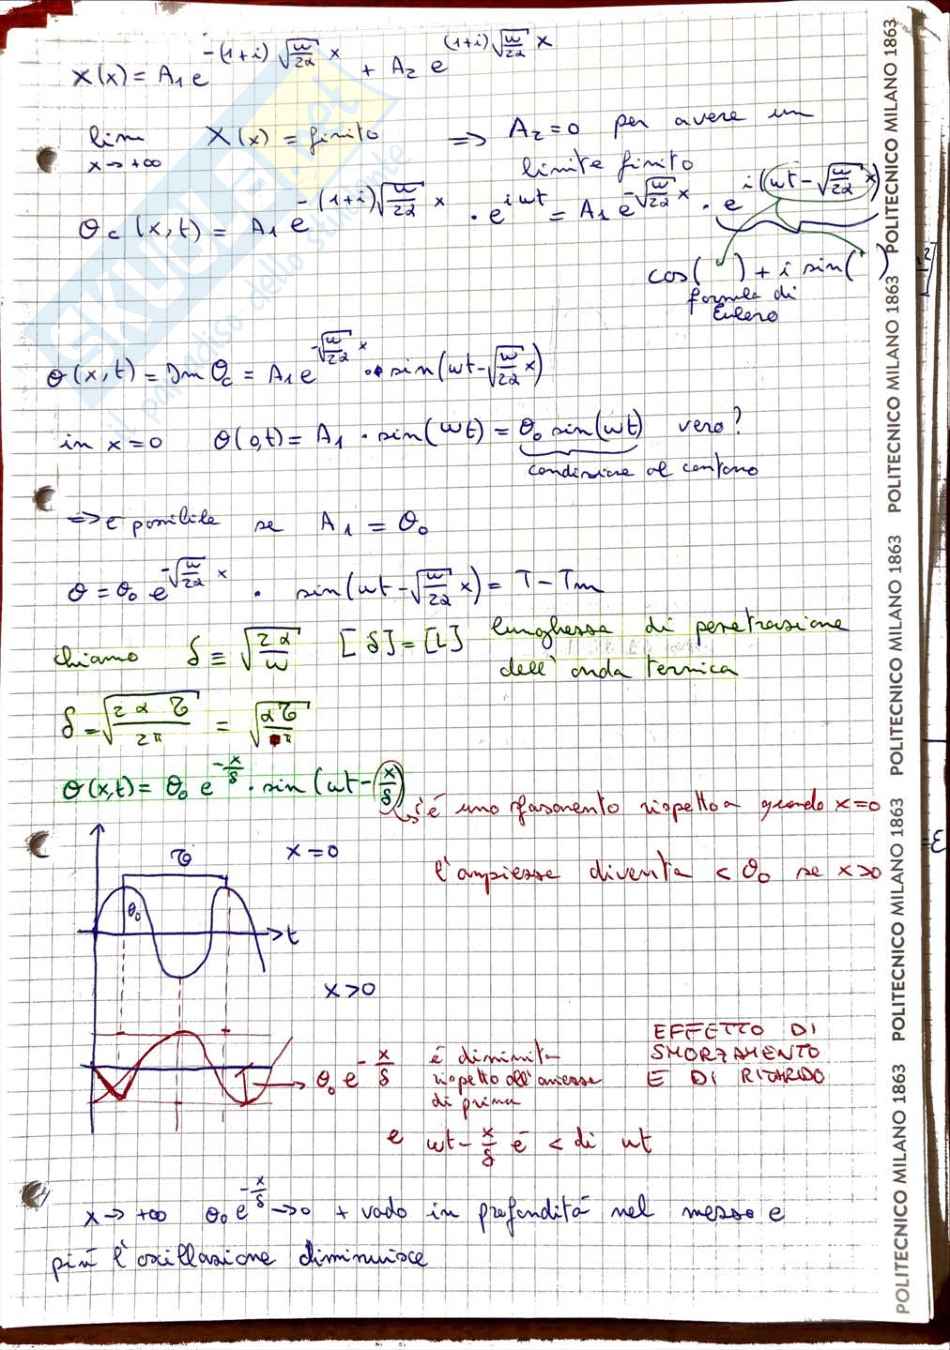 X(x) = A₁ e^{-(1+i)√(ω/2α) x} + A₂ e^{(1+i)√(ω/2α) x}
lim x→+∞ X(x) = finito ⇒ A₂ = 0 per avere un
limite finito
θc (x,t) = A₁ e^{-(1+i)√(ω/2α) x} · e^{iωt} = A₁ e^{-√(ω/2α) x} · e^{i(ωt-√(ω/2α) x)}
cos( ) + i sin( )
formula di
Eulero
θ(x,t) = Im θc = A₁ e^{-√(ω/2α) x} · sin(ωt-√(ω/2α) x)
in x=0 θ(0,t) = A₁ · sin(ωt) = θ₀ sin(ωt) vero?
condizione al contorno
⇒ è possibile se A₁ = θ₀
θ = θ₀ e^{-√(ω/2α) x} · sin(ωt-√(ω/2α) x) = T - Tm
chiamo δ ≡ √(2α/ω) [δ] = [L] lunghezza di penetrazione
dell'onda termica
δ = √(2ατ/2π) = √(ατ/π)
θ(x,t) = θ₀ e^{-x/δ} · sin(ωt-x/δ)
c'è uno sfasamento rispetto a quando x=0
τ x=0
l'ampiezza diventa < θ₀ se x>0
θ₀
t
x>0
θ₀ e^{-x/δ} è diminuita
rispetto all'ampiezza
di prima
EFFETTO DI
SMORZAMENTO
E DI RITARDO
e ωt - x/δ è < di ωt
x→+∞ θ₀ e^{-x/δ}→0 + vado in profondità nel mezzo e
più l'oscillazione diminuisce
POLITECNICO MILANO 1863 POLITECNICO MILANO 1863 POLITECNICO MILANO 1863 POLITECNICO MILANO 1863 POLITECNICO MILANO 1863
SKUOLA.net
il paradiso dello studente